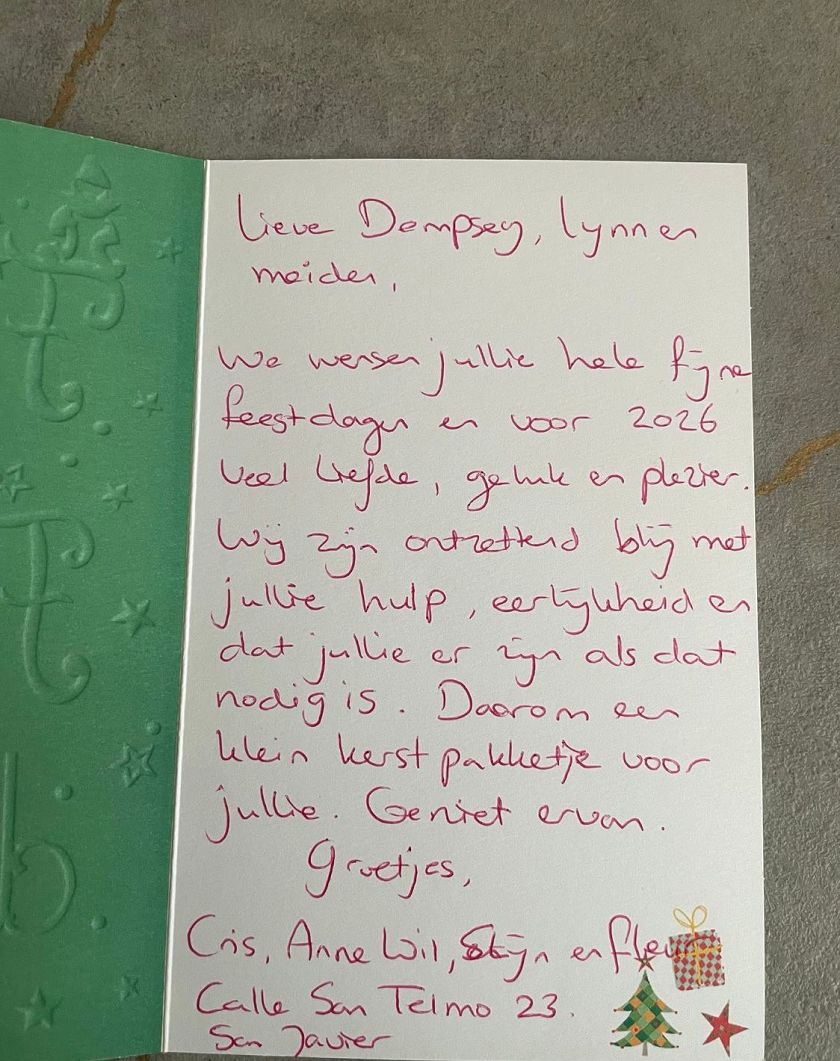 Lieve Dempsey, Lynn en
meiden,
We wensen jullie hele fijne
feestdagen en voor 2026
veel liefde, geluk en plezier.
Wij zijn ontzettend blij met
jullie hulp, eerlijkheid en
dat jullie er zijn als dat
nodig is. Daarom een
klein kerstpakketje voor
jullie. Geniet ervan.
Groetjes,
Cris, Anne Wil, Stijn en Fleur
Calle San Telmo 23.
San Javier